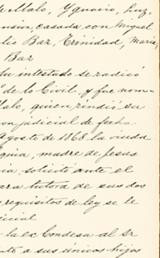 Malo, Ygnacio, Luz,
casada con Miguel
Baz, Trinidad, Maria
Baz
tu intestado se radicó
de lo Civil, y fue nom-
Malo, quien rindió su
on judicial de fecha
Agosto de 1868 la viuda
madre de Jesus
solicitó ante el
tutora de sus dos
requisitos de ley se le
icial
la ex Condesa al Sr
te a sus únicos hijos